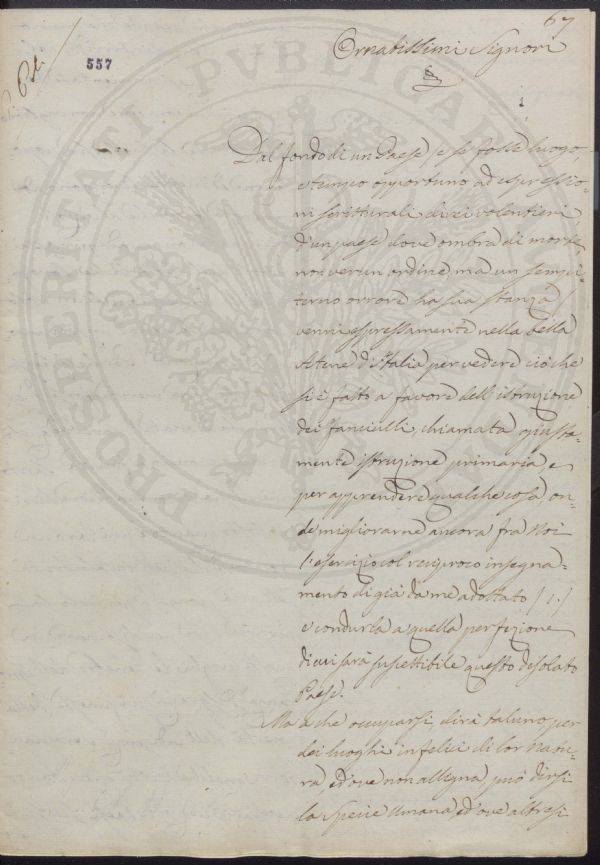 67
557
Ornatissimi Signori
1
Dal fondo di un Paese, e se fosse luogo,
e tempo opportuno ad espressio-
ni scritturali direi volentieri
d'un paese dove ombra di morte,
non verun ordine ma un sempi-
terno orrore ha sua stanza /
venni espressamente nella bella
Atene d'Italia per vedere ciò che
si è fatto a favore dell'istruzione
dei fanciulli, chiamata giusta-
mente istruzione primaria, e
per apprendere qualche cosa on-
de migliorarne ancora fra Noi
l'esercizio col reciproco insegna-
mento di già da me adottato / 1. /
e condurla a quella perfezione
di cui sarà suscettibile questo desolato
Paese.
Ma a che occuparsi dirà taluno per
dei luoghi infelici di lor natu-
ra ed ove non allegna, può dirsi
la Specie Umana, ed ove altresì
PROSPERITATI PVBLICAE